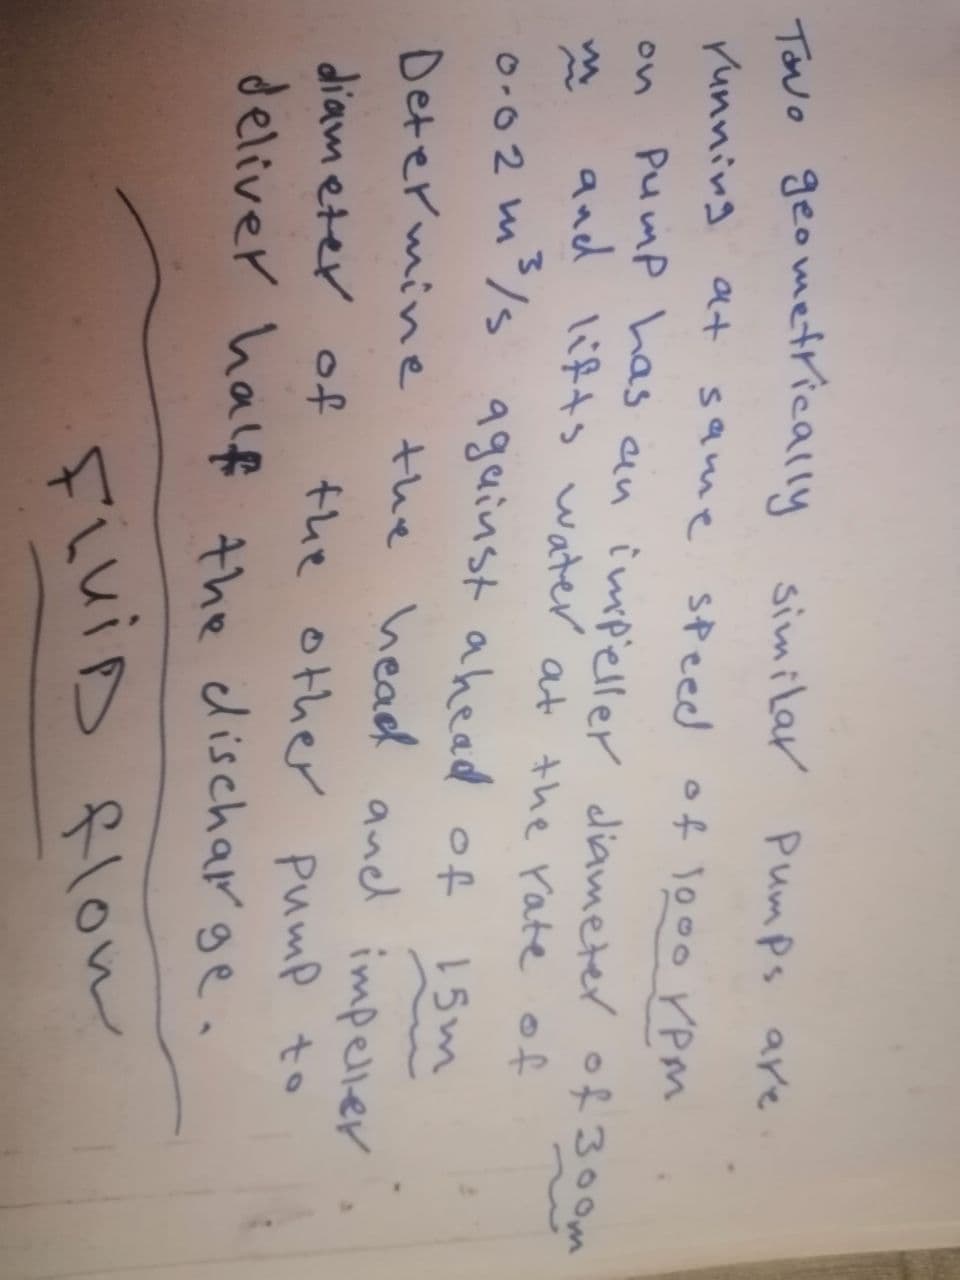 Two geometrically similar pumps are
running at same speed of 1000 rpm
on pump has an impeller diameter of 300m
m and lifts water at the rate of
0.02 m³/s against ahead of 15m
Determine the head and impeller
diameter of the other pump to
deliver half the discharge.
FluiD flow